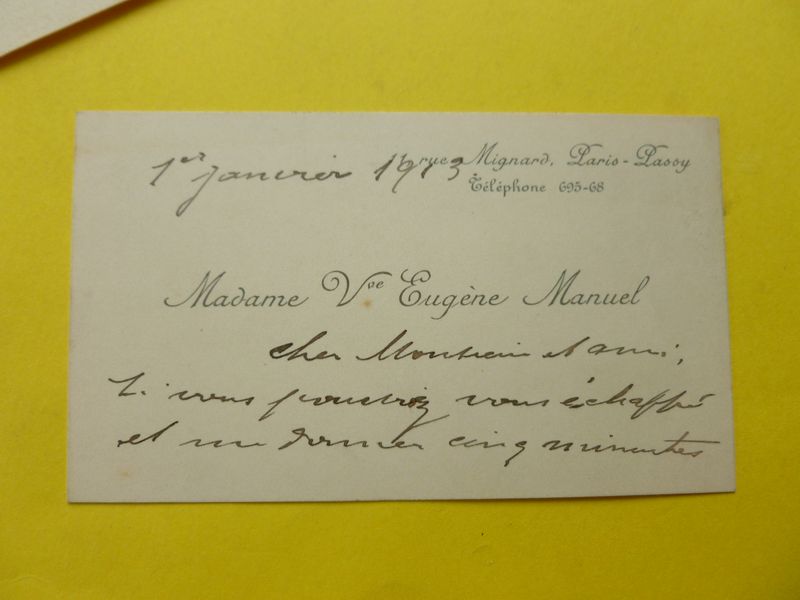 1er janvier 1913
rue Mignard, Paris-Passy
Téléphone 695-68
Madame Vve Eugène Manuel
cher Monsieur et ami,
Si vous pouviez vous échapper
et me donner cinq minutes